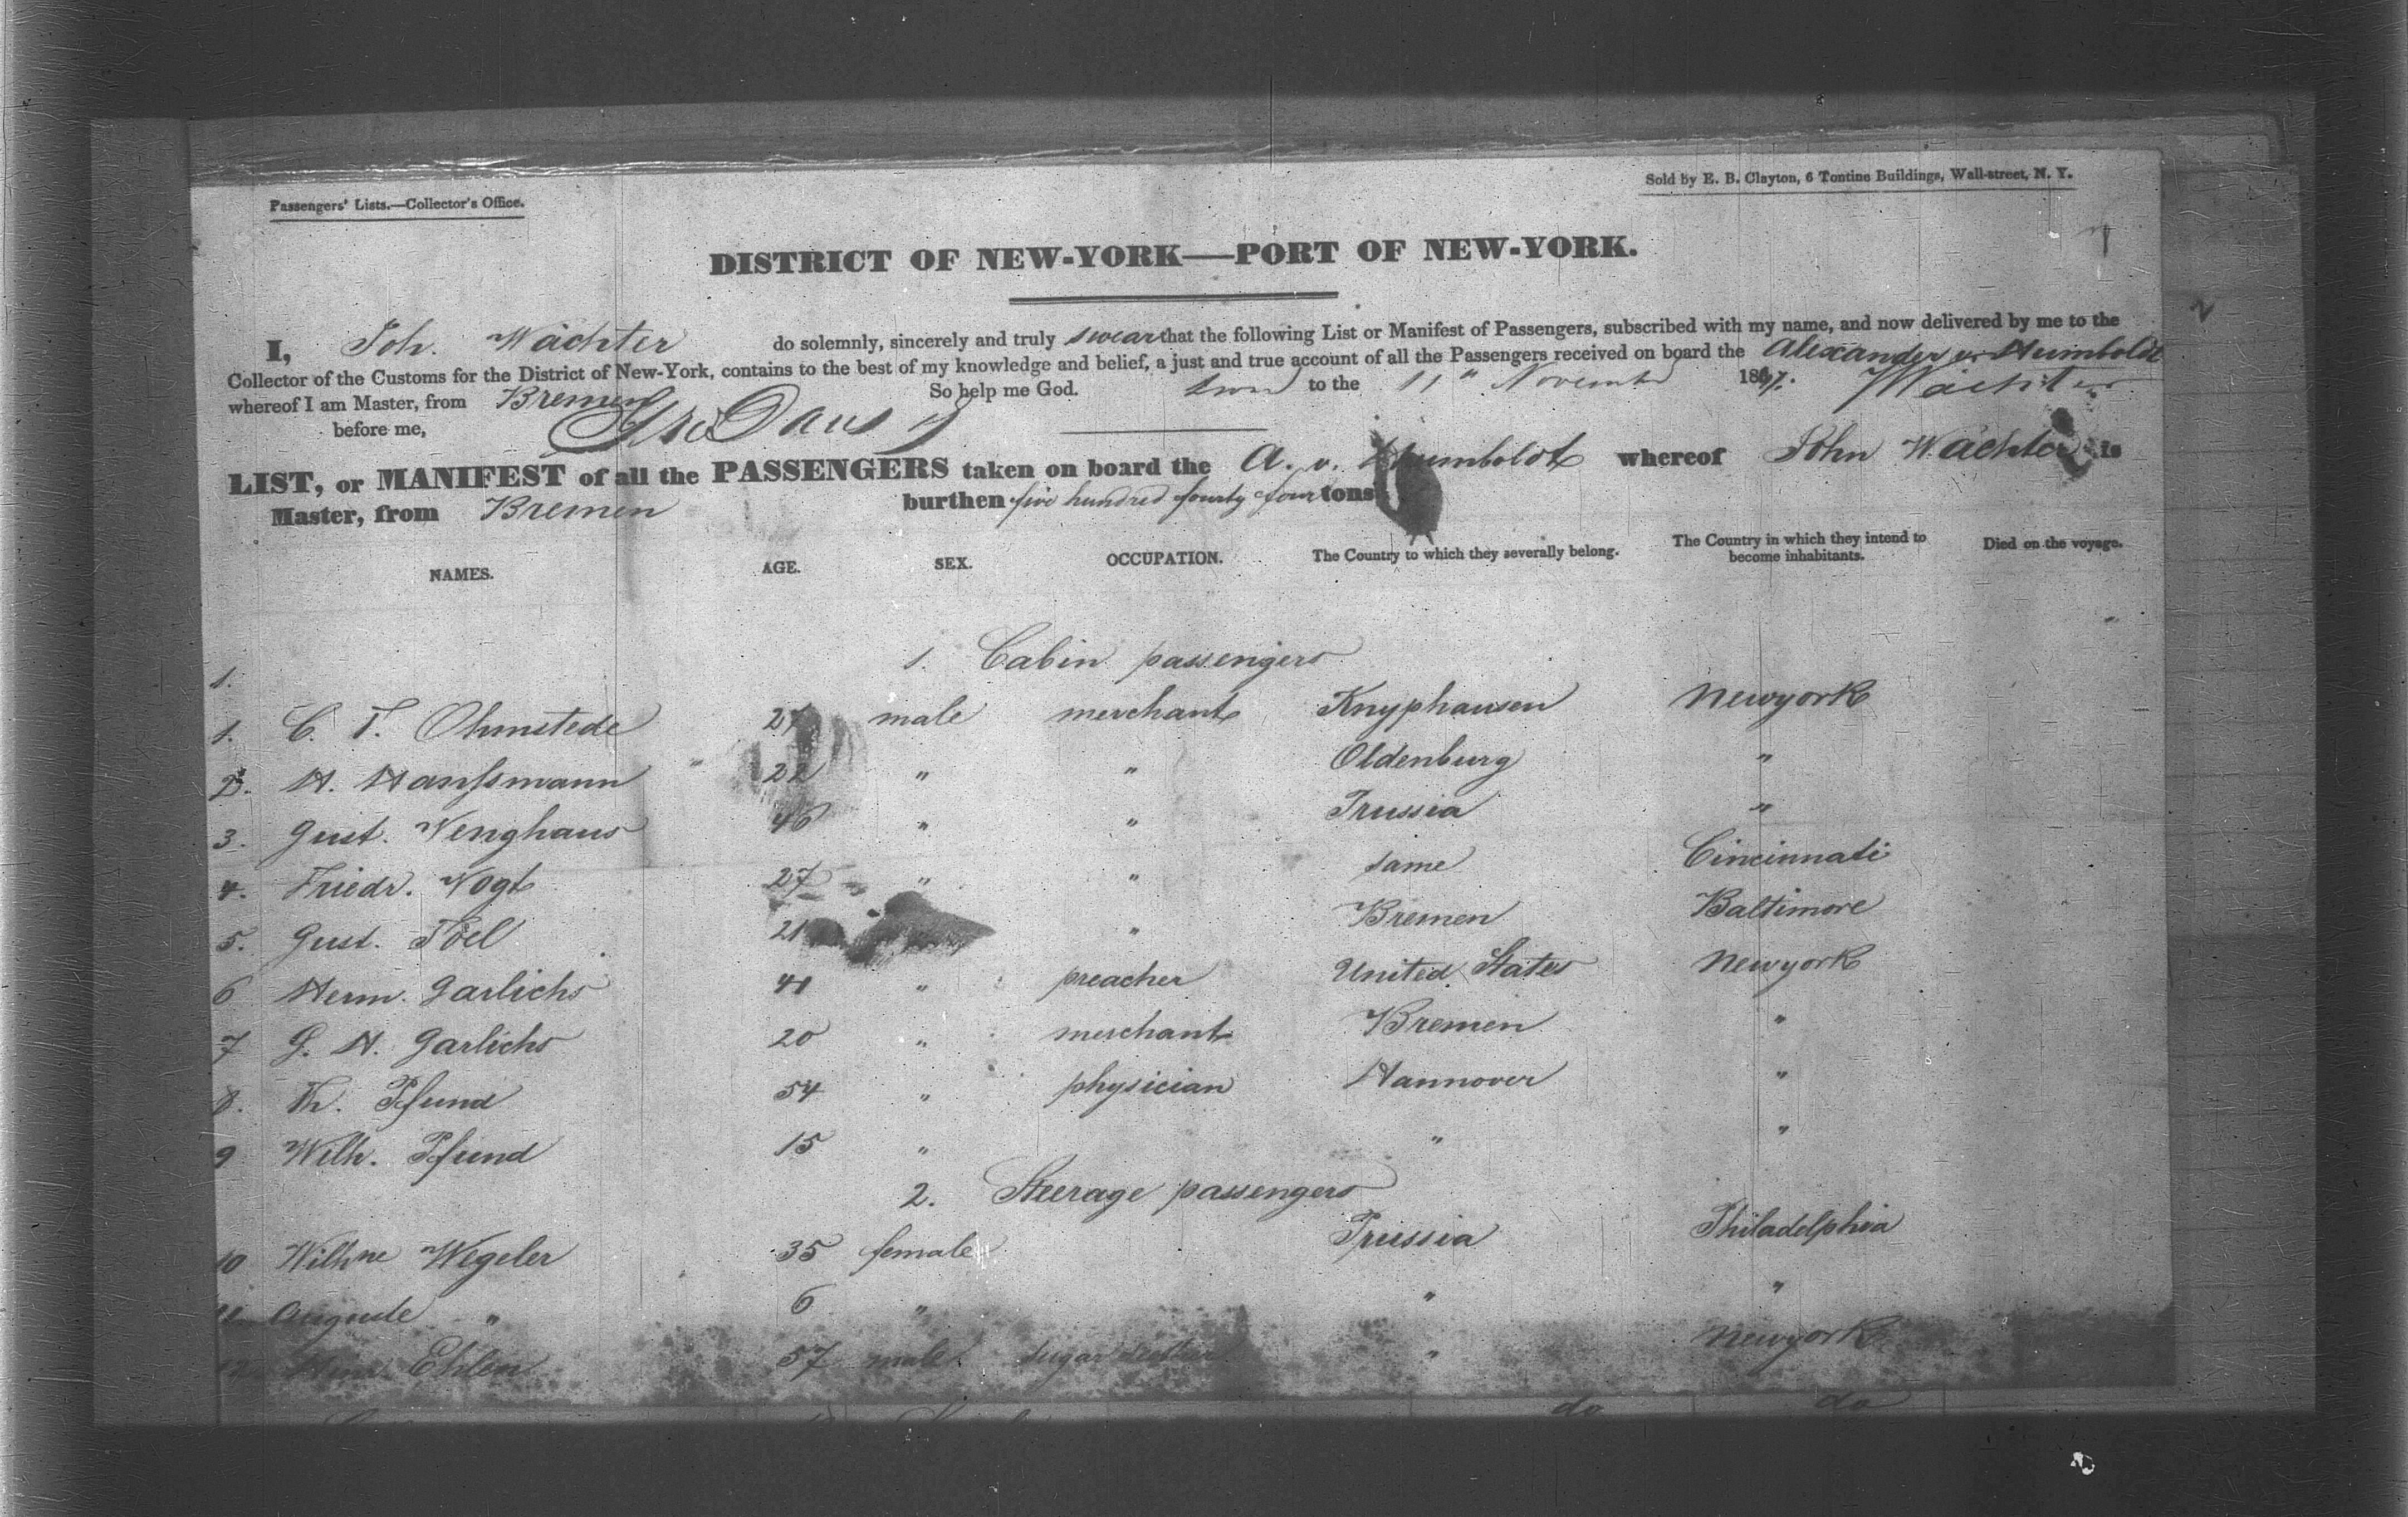 Passengers' Lists.—Collector's Office.
Sold by E. B. Clayton, 6 Tontine Buildings, Wall-street, N. Y.
DISTRICT OF NEW-YORK—PORT OF NEW-YORK.
I, Joh. Wächter do solemnly, sincerely and truly swear that the following List or Manifest of Passengers, subscribed with my name, and now delivered by me to the
Collector of the Customs for the District of New-York, contains to the best of my knowledge and belief, a just and true account of all the Passengers received on board the Alexander v. Humboldt
whereof I am Master, from Bremen So help me God. to the 11" November 184 Wächter
before me,
LIST, or MANIFEST of all the PASSENGERS taken on board the A. v. Humboldt whereof John Wächter is
Master, from Bremen burthen five hundred fourty four tons
NAMES. AGE. SEX. OCCUPATION. The Country to which they severally belong. The Country in which they intend to become inhabitants. Died on the voyage.
1. Cabin passengers
1.
1. C. T. Ohmstede 27 male merchant Knyphausen Newyork
2. H. Hanssmann 22 " " Oldenburg "
3. Gust. Venghaus 46 " " Prussia "
4. Friedr. Vogt 27 " " same Cincinnati
5. Gust. Töel 21 " Bremen Baltimore
6 Herm. Garlichs 41 " preacher United States Newyork
7 G. H. Garlichs 20 " merchant Bremen "
8. Th. Pfund 54 " physician Hannover "
9 Wilh. Pfund 15 " " "
2. Steerage passengers
10 Wilhne Wegeler 35 female Prussia Philadelphia
11. Auguste " 6 " " "
12. Ehlen 57 male sugar " Newyork
do do